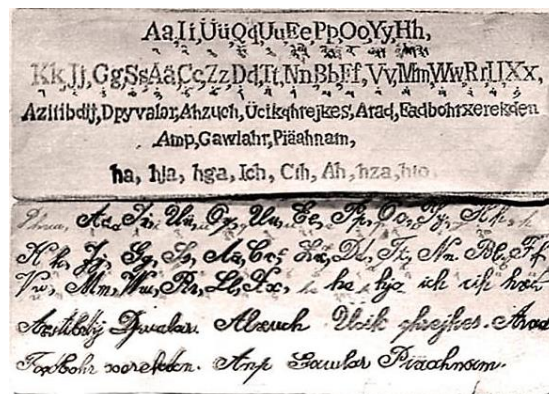 Aa,Ii,Üü,Qq,Uu,Ee,Pp,Oo,Yy,Hh,
Kk,Jj,Gg,Ss,Ää,Cc,Zz,Dd,Tt,Nn,Bb,Ff, Vv,Mm,Ww,Rr,Ll,Xx,
Azitibdij, Dpyvalor, Ahzuch, Ücikqhrejkes, Arad, Fadbohrxerekden
Amp, Gawlahr, Piäahnam,
ha, hja, hga, Ich, Cih, Ah, hza, hio
Uu, Ee, Pp, Oo, Yy, Hh,
Kk, Jj, Gg, Ss, Ää, Cc, Zz, Dd, Tt, Nn, Bb, Ff
Vv, Mm, Ww, Rr, Ll, Xx, ha hja ich
Ahzuch Ücik Arad
xerekden. Amp Piäahnam.